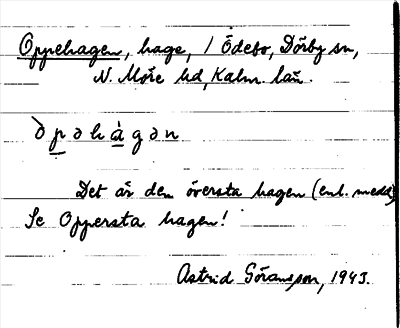 Oppehagen, hage, 1 Ödebo, Dörby sn,
N. Möre hd, Kalm. län.
òpəhàgən
Det är den översta hagen (enl. medd.)
Se Oppersta hagen!
Astrid Göransson, 1943.